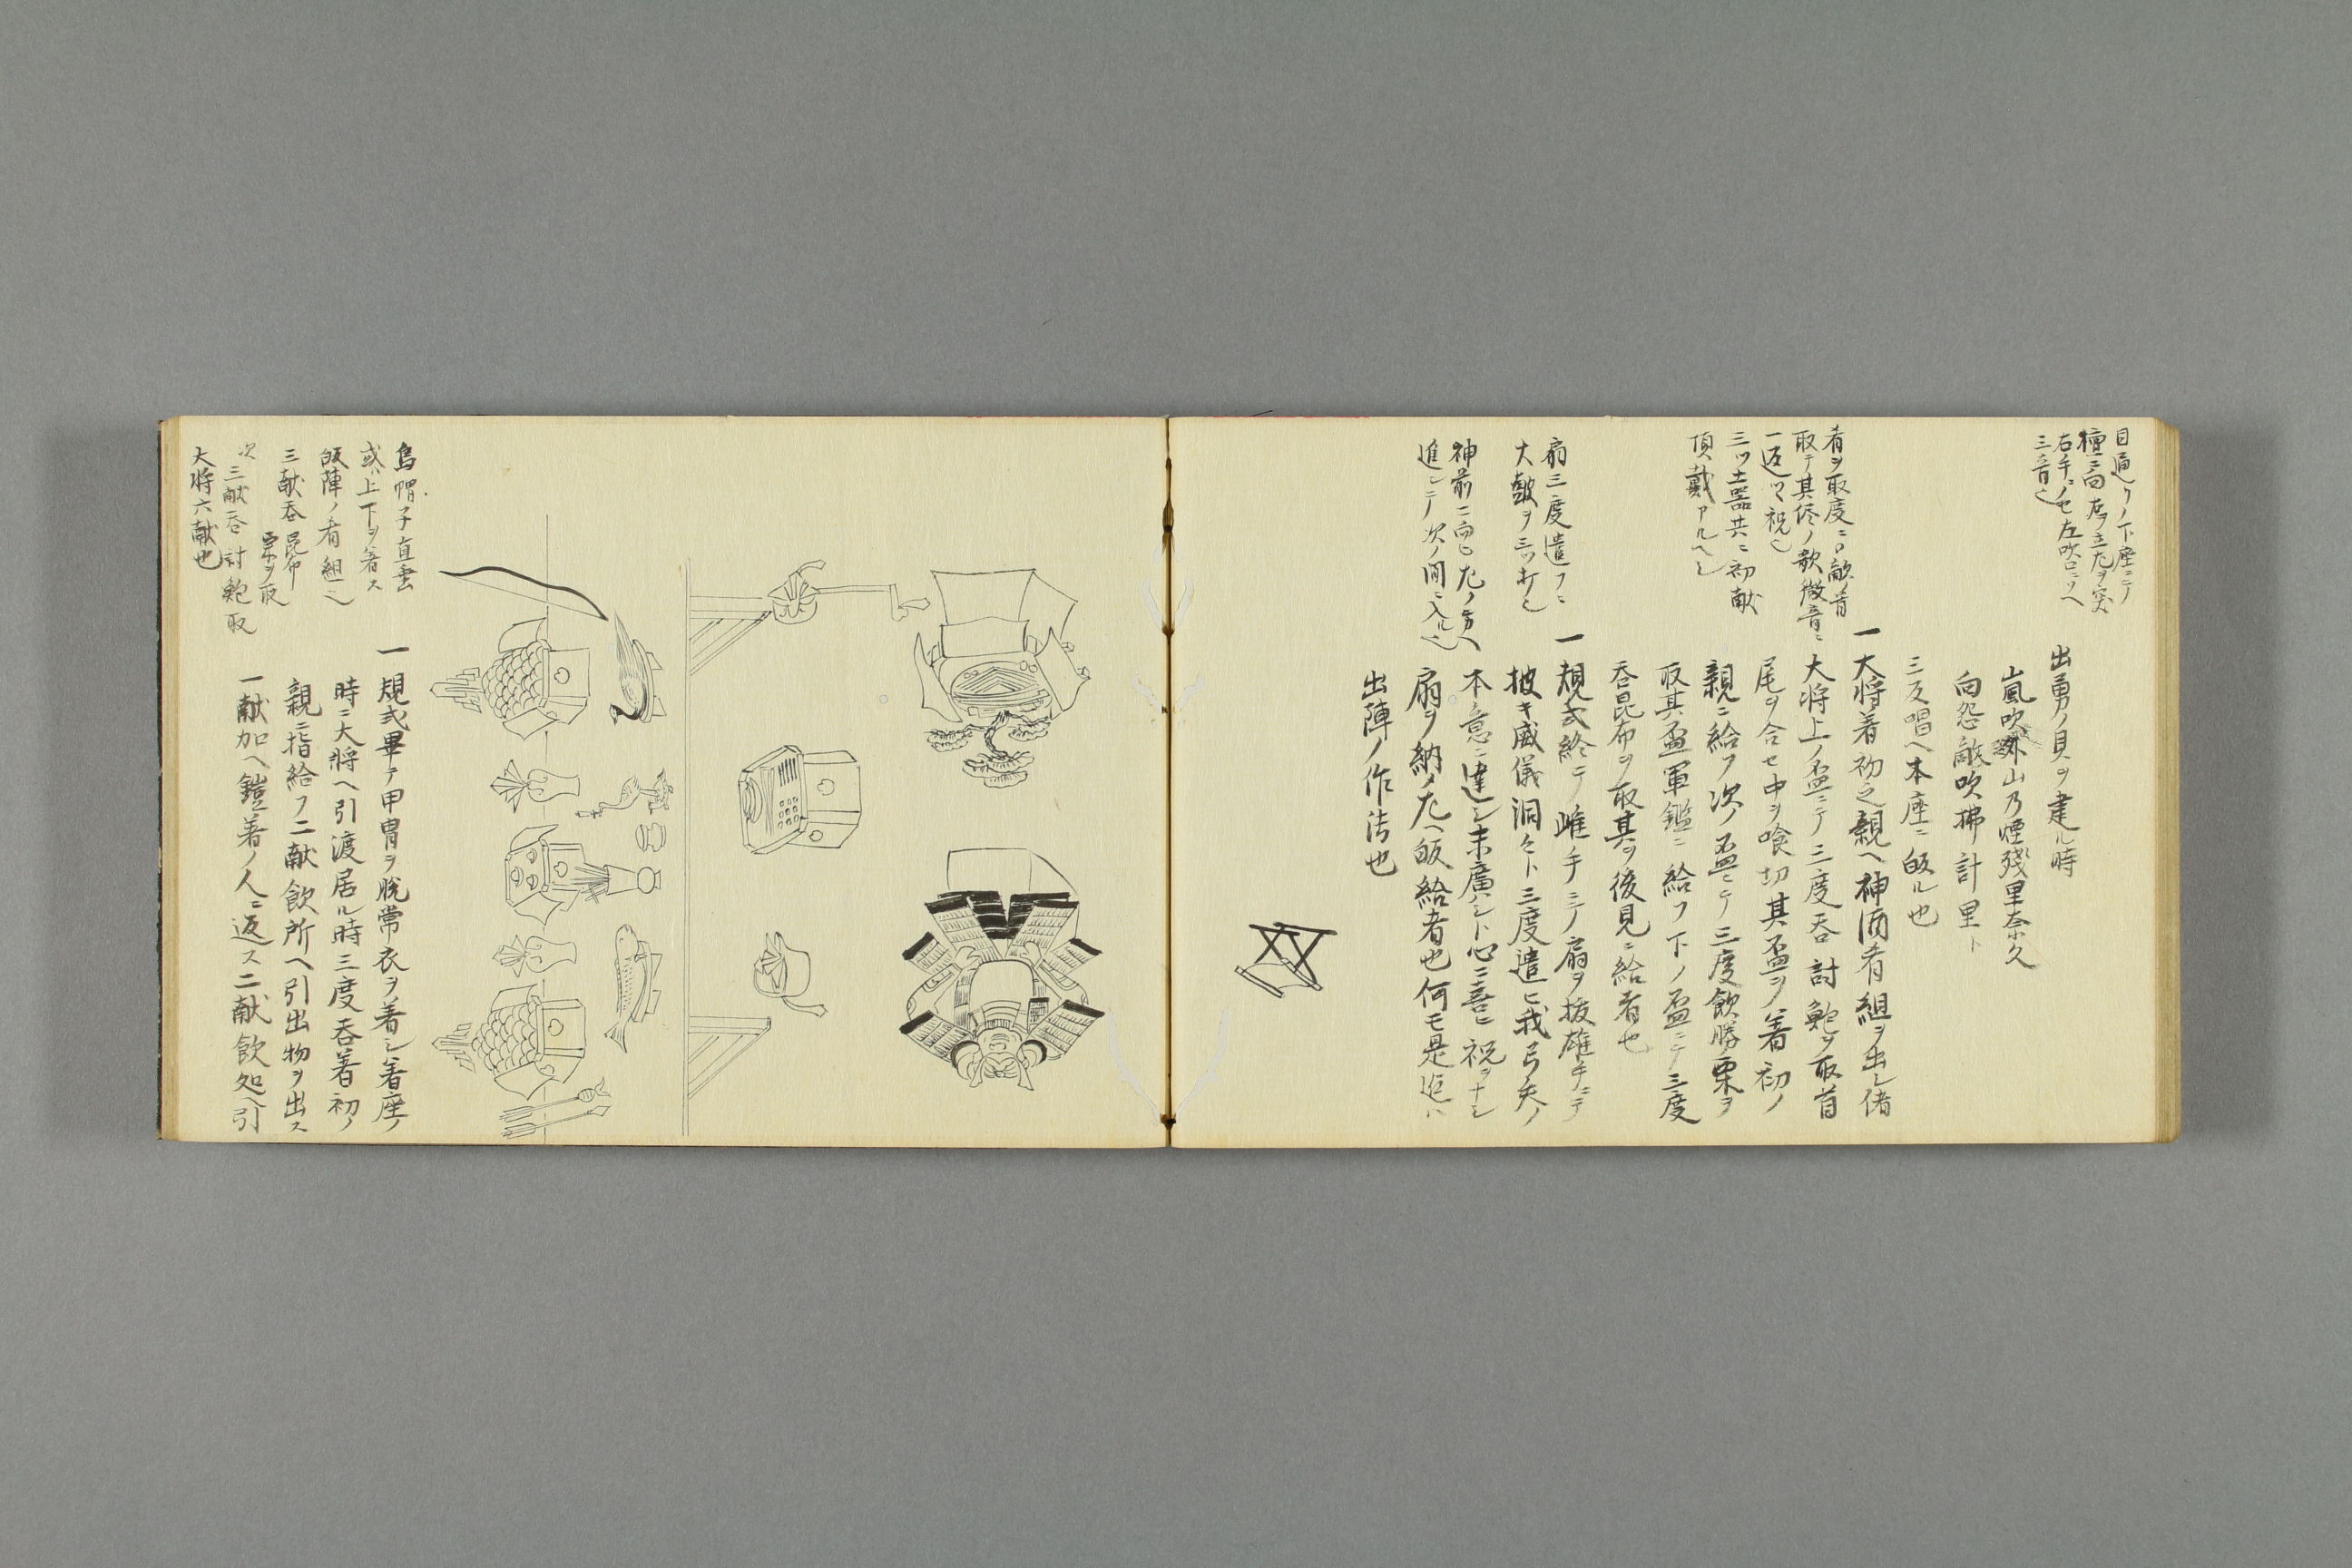 目通リノ下座ニテ
檀ニ向左ヲ立尤ヲ突
右手ノセ左吹口ニソヘ
三音也
出勇ノ貝ヲ建ル時
嵐吹外山乃煙殘里奈久
向怨敵吹拂計里ト
三反唱ヘ本座ニ皈ル也
肴ヲ取度ニ口敵ノ首
取テ其侭ノ歌微音ニ
一返ツヽ祝也
三ツ土器共ニ初献
頂戴アルヘシ
一大将着初之親ヘ神酒肴組ヲ出シ偖
大将上ノ盃ニテ三度呑討鮑ヲ取首
尾ヲ合セ中ヲ喰切其盃ヲ着初ノ
親ニ給フ次ノ盃ニテ三度飲勝栗ヲ
取其盃軍鑑ニ給フ下ノ盃ニテ三度
呑昆布ヲ取其ヲ後見ニ給者也
扇三度遣フニ
大皷ヲ三ツ打也
神前ニ向ヒ尤ノ方ヘ
進シテ次ノ間ニ入ル也
一規式終テ雌手ニテ扇ヲ抜雄手ニテ
披キ威儀洞々ト三度遣ヒ我弓矢ノ
本意ニ達シ末廣ハシト心ニ喜ヒ祝ヲナシ
扇ヲ納メ尤ヘ皈給者也何モ是迄ハ
出陣ノ作法也
烏帽子直垂
或ハ上下ヲ着ス
皈陣ノ肴組也
三献呑昆布
栗ヲ取
次三献呑討鮑取
大将六献也
一規式畢テ甲冑ヲ脱常衣ヲ着シ着座ノ
時ニ大将ヘ引渡居ル時三度呑着初ノ
親ニ指給フ二献飲所ヘ引出物ヲ出ス
一献加ヘ鎧着ノ人ニ返ス二献飲処ヘ引